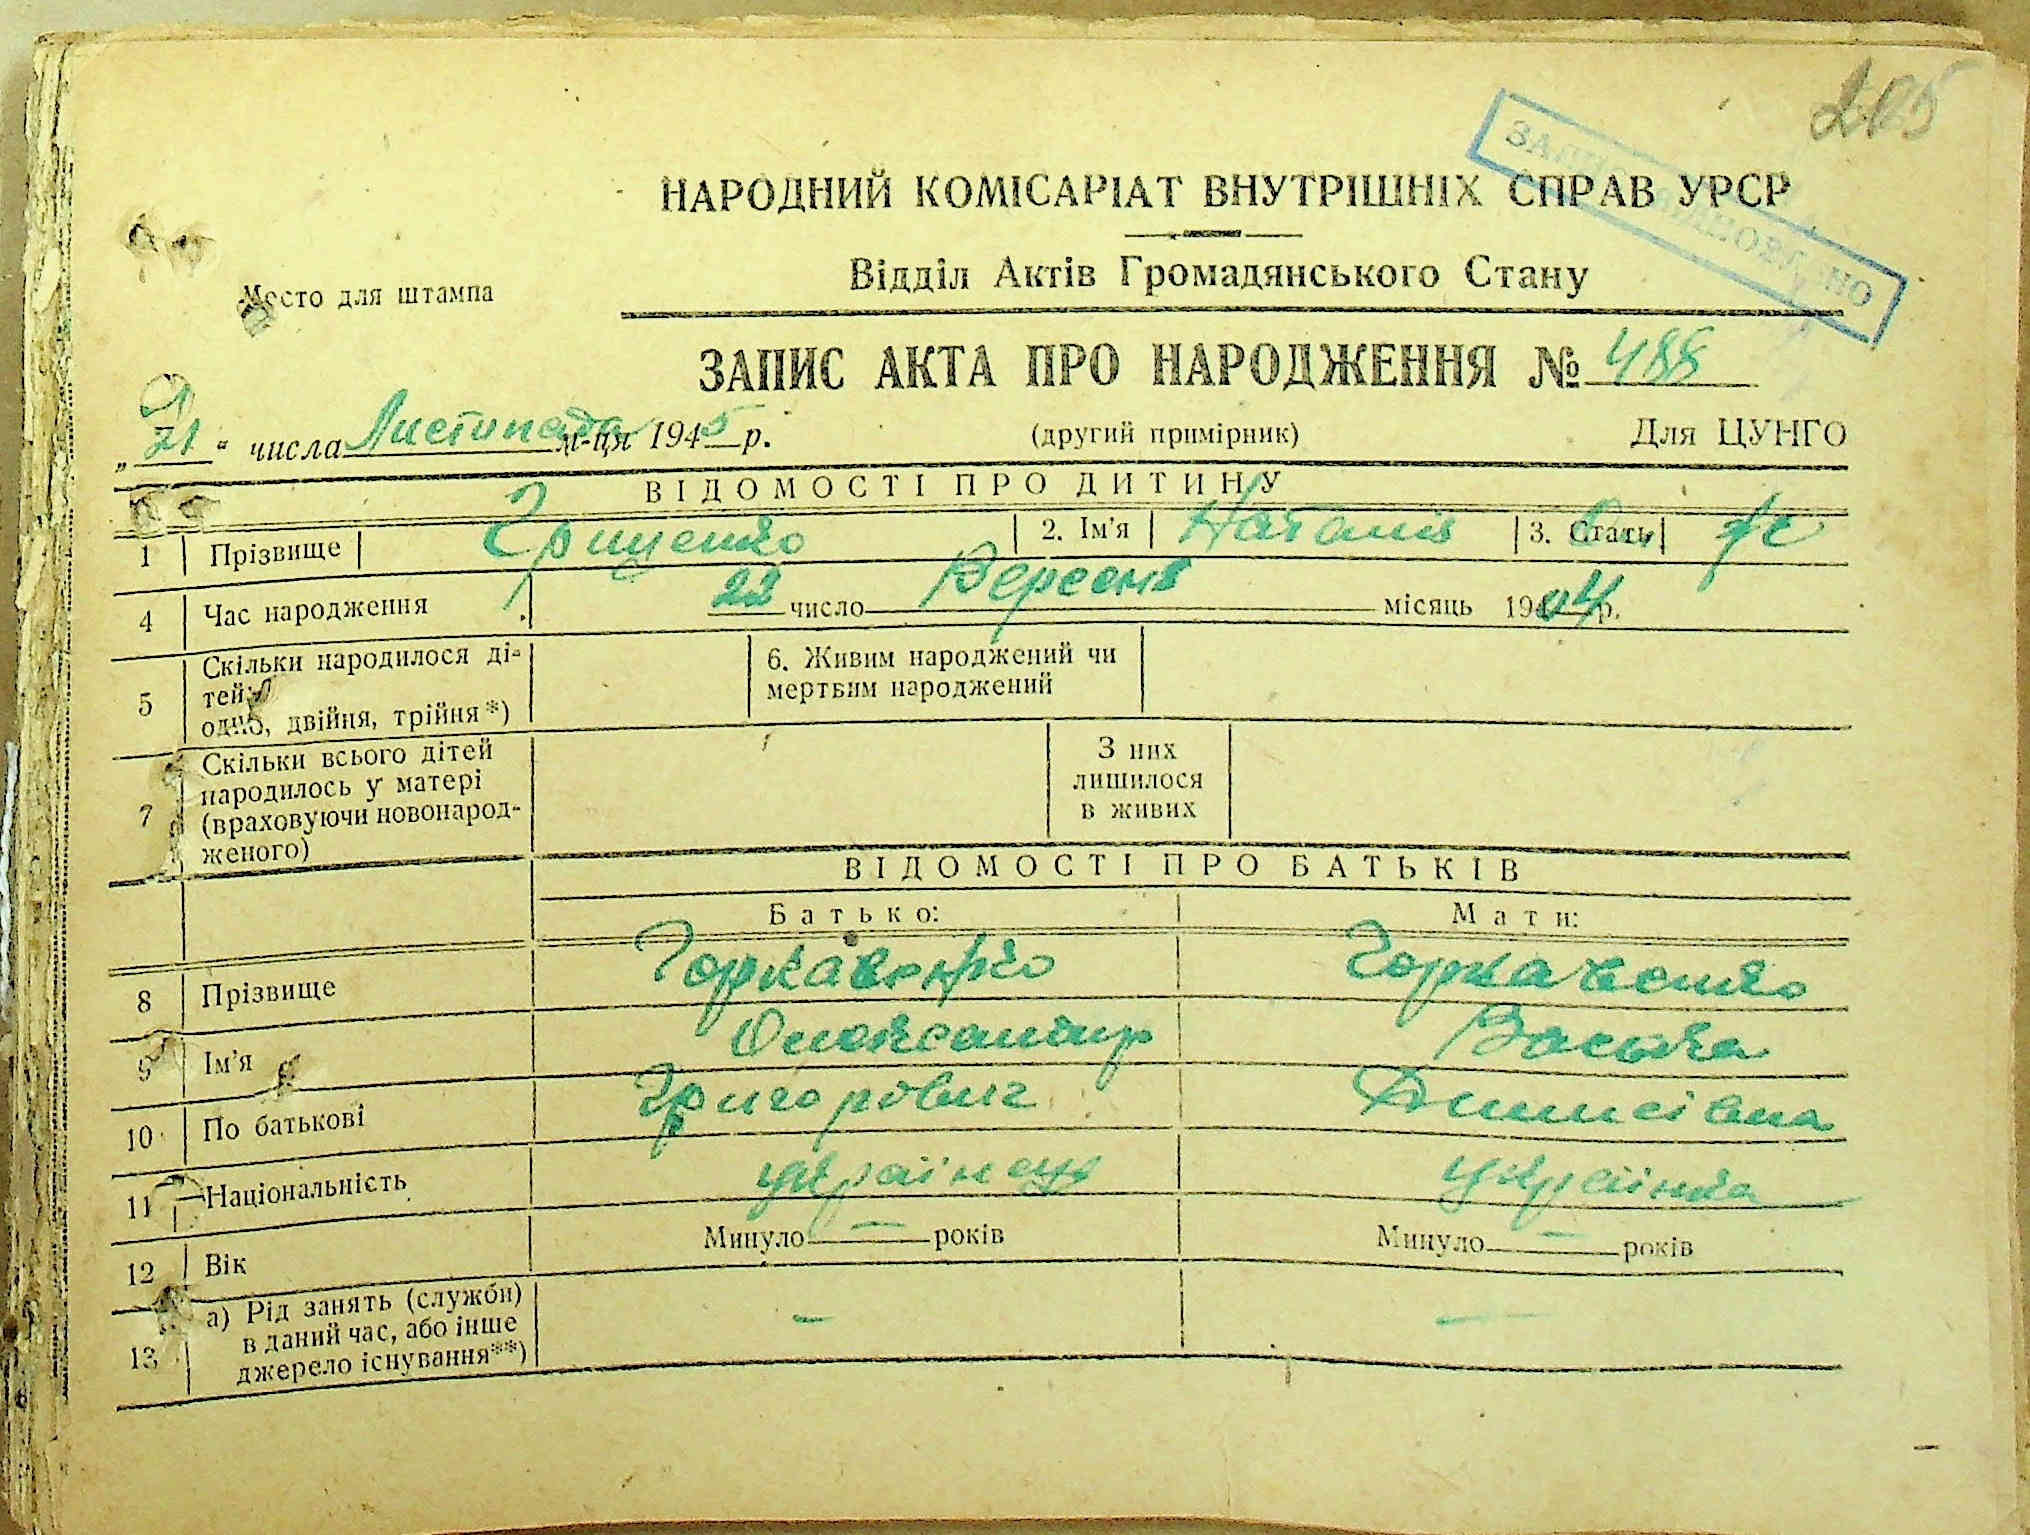 205
ЗАПИС ВІДНОВЛЕНО
НАРОДНИЙ КОМІСАРІАТ ВНУТРІШНІХ СПРАВ УРСР
Відділ Актів Громадянського Стану
Место для штампа
ЗАПИС АКТА ПРО НАРОДЖЕННЯ № 488
„21“ числа Листопада м-ця 1945 р. (другий примірник) Для ЦУНГО
ВІДОМОСТІ ПРО ДИТИНУ
1 Прізвище Грищенко 2. Ім'я Наталія 3. Стать ж
4 Час народження 22 число Вересня місяць 1904 р.
5 Скільки народилося ді-
тей:
одно, двійня, трійня*)
6. Живим народжений чи
мертвим народжений
7 Скільки всього дітей
народилось у матері
(враховуючи новонарод-
женого)
З них
лишилося
в живих
ВІДОМОСТІ ПРО БАТЬКІВ
Батько: Мати:
8 Прізвище Горкавенко Горкавенко
9 Ім'я Олександр Васька
10 По батькові Григорович Денисівна
11 Національність українець українка
12 Вік Минуло — років Минуло — років
13 а) Рід занять (служби)
в даний час, або інше
джерело існування**)
— —